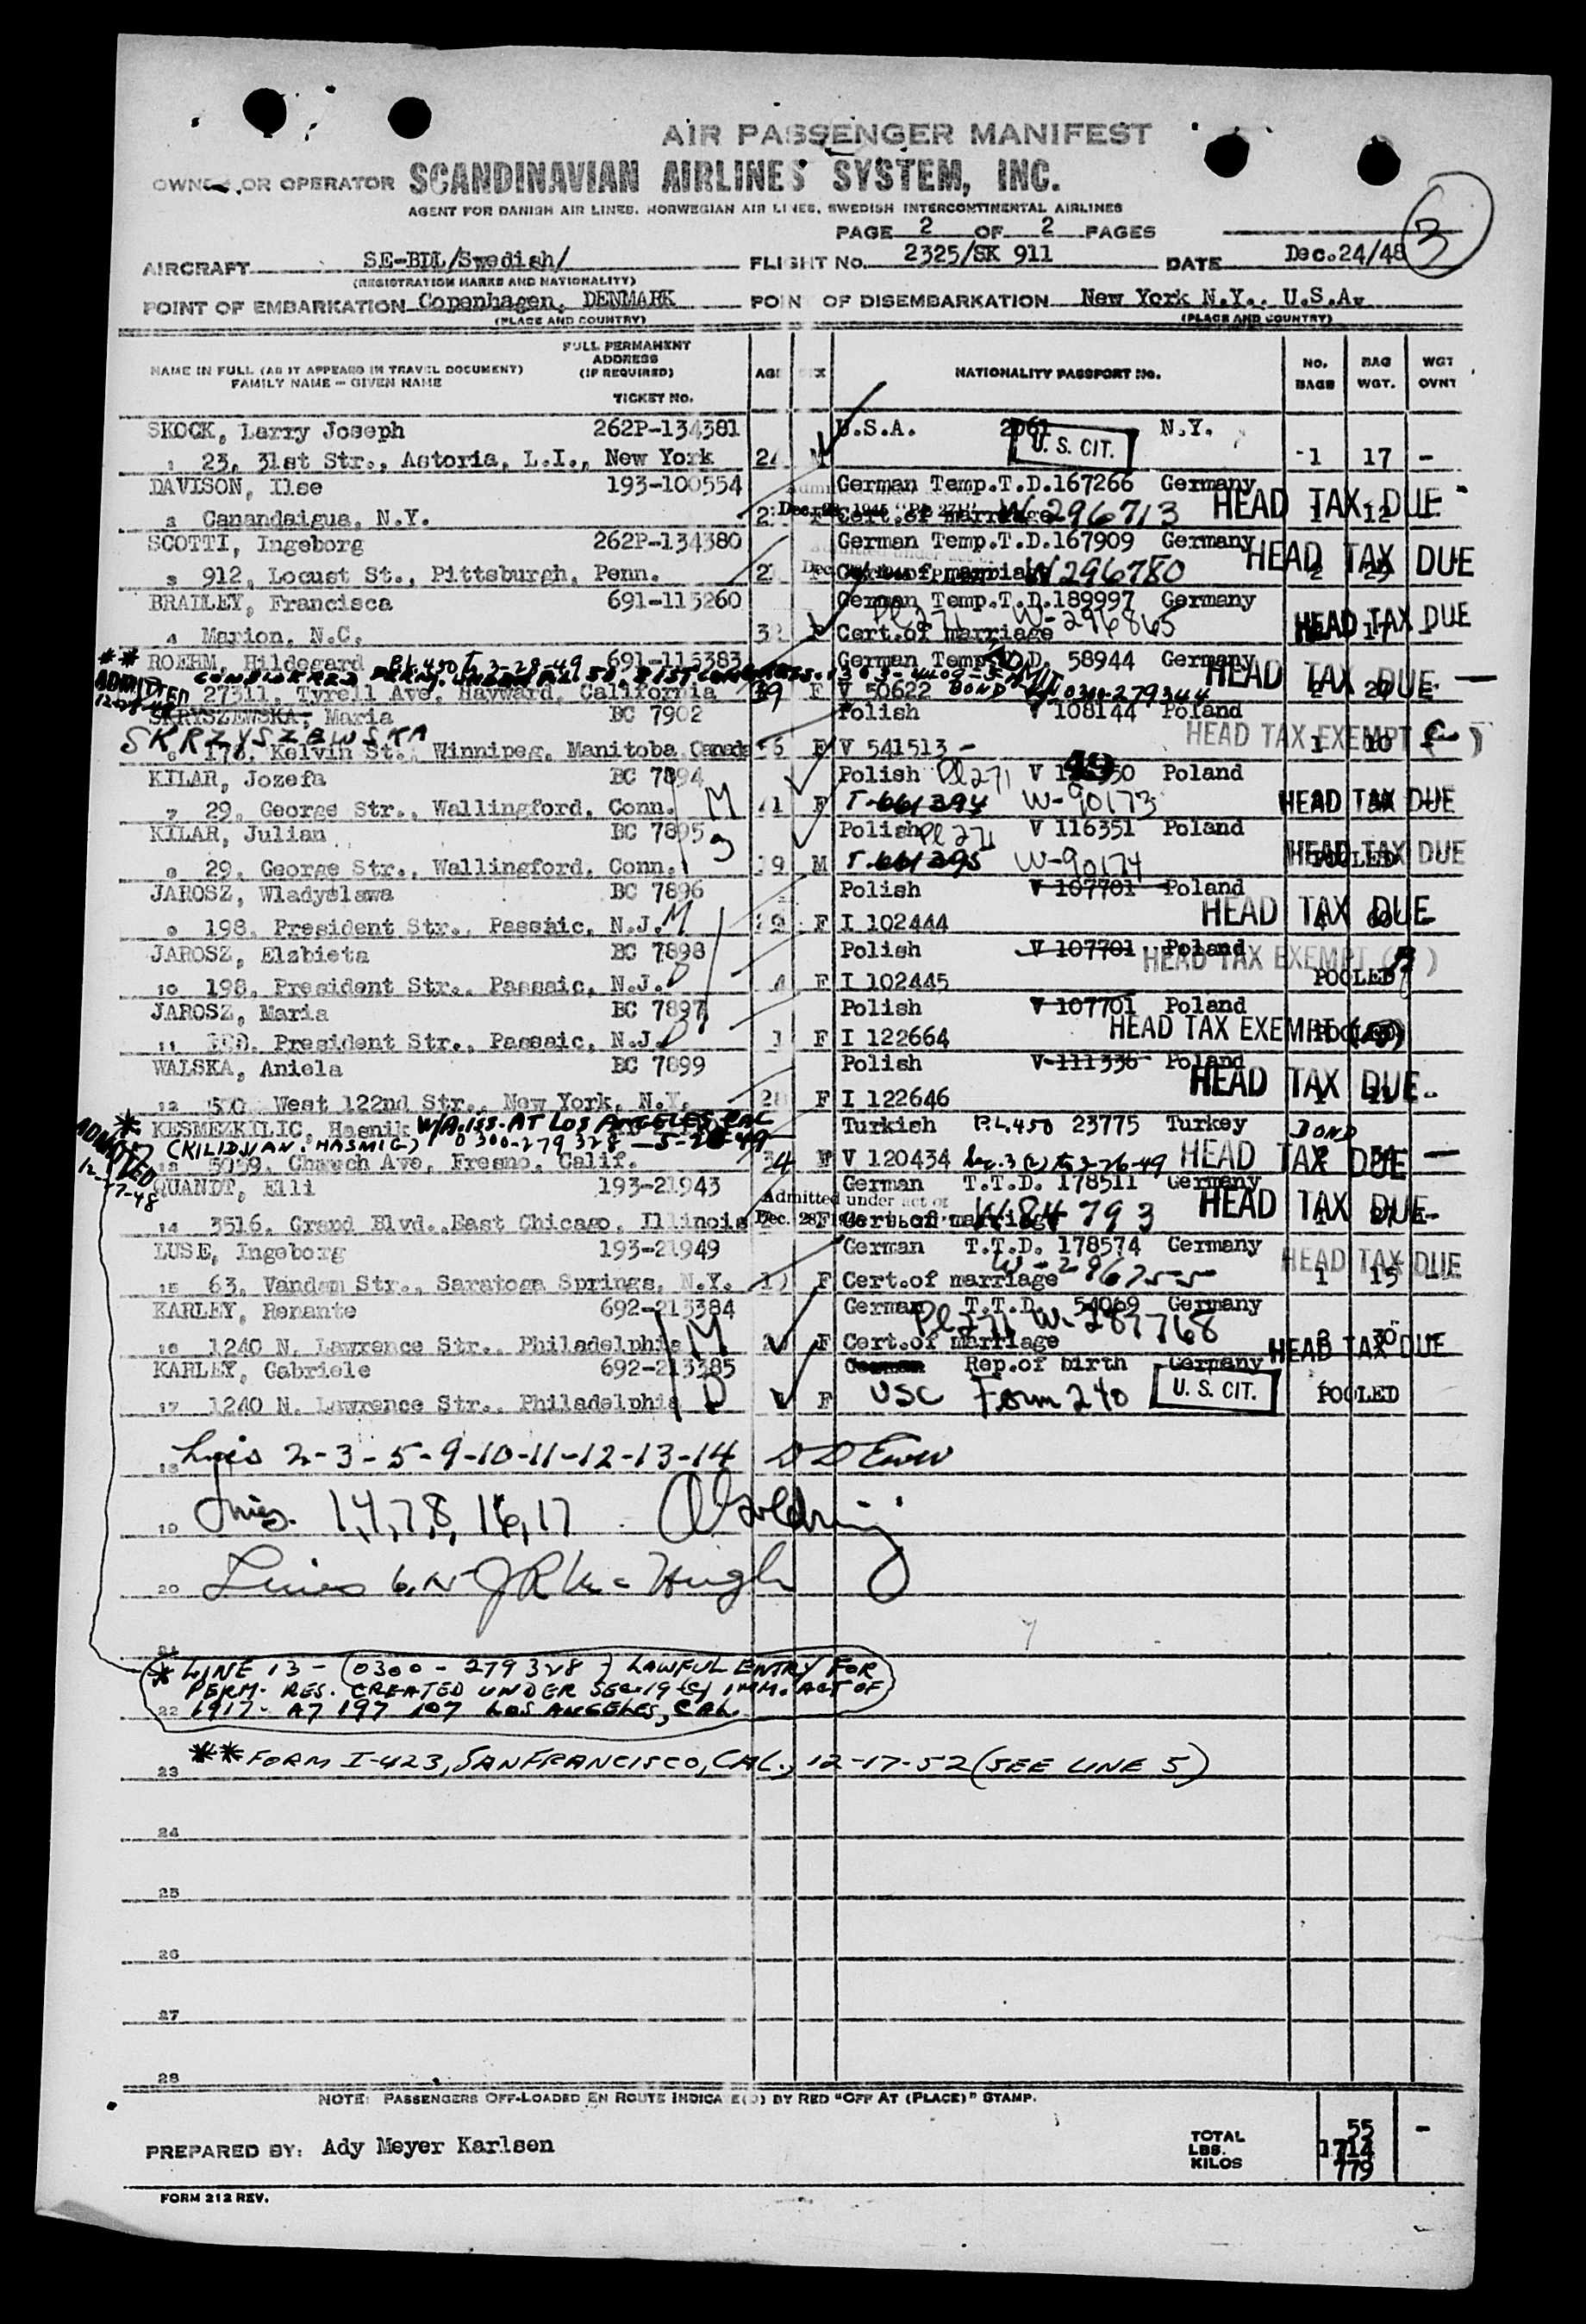 AIR PASSENGER MANIFEST
OWNER OR OPERATOR SCANDINAVIAN AIRLINES SYSTEM, INC.
AGENT FOR DANISH AIR LINES, NORWEGIAN AIR LINES, SWEDISH INTERCONTINENTAL AIRLINES
PAGE 2 OF 2 PAGES
3
AIRCRAFT SE-BDL/Swedish/ FLIGHT No. 2325/SK 911 DATE Dec.24/48
(REGISTRATION MARKS AND NATIONALITY)
POINT OF EMBARKATION Copenhagen, DENMARK POIN OF DISEMBARKATION New York N.Y., U.S.A.
(PLACE AND COUNTRY) (PLACE AND COUNTRY)
NAME IN FULL (AS IT APPEARS IN TRAVEL DOCUMENT) FAMILY NAME – GIVEN NAME
FULL PERMANENT ADDRESS (IF REQUIRED) TICKET No.
NATIONALITY PASSPORT NO. NO. BAGS BAG WGT. WGT OVNT
SKOCK, Larry Joseph 262P-134381 U.S.A. 2061 N.Y.
1 23, 31st Str., Astoria, L.I., New York M U. S. CIT. 1 17 -
DAVISON, Ilse 193-100554 German Temp.T.D.167266 Germany
2 Canandaigua, N.Y. Cert.of marriage 296713 HEAD TAX DUE 1 12
SCOTTI, Ingeborg 262P-134380 German Temp.T.D.167909 Germany
3 912, Locust St., Pittsburgh, Penn. 296780 HEAD TAX DUE
BRAILEY, Francisca 691-115260 German Temp.T.D.189997 Germany
4 Marion, N.C. F Cert.of marriage W-296865 HEAD TAX DUE 17
** ROEHM, Hildegard P.L.450 to 3-28-49 691-115383 German Temp. T.D. 58944 Germany
ADMITTED 12-28-48 27311, Tyrell Ave, Hayward, California 39 F V 50622 BOND 0300-279344 HEAD TAX DUE —
SKRYSZEWSKA, Maria BC 7902 Polish V 108144 Poland
SKRZYSZEWSKA
6 178, Kelvin St., Winnipeg, Manitoba Canada F V 541513 - HEAD TAX EXEMPT 1 10
KILAR, Jozefa BC 7894 Polish Pl 271 Poland
7 29, George Str., Wallingford, Conn. M 41 F T-661394 W-90173 HEAD TAX DUE
KILAR, Julian BC 7895 Polish Pl 271 V 116351 Poland
8 29, George Str., Wallingford, Conn. S 19 M T-661395 W-90174 POOLED HEAD TAX DUE
JAROSZ, Wladyslawa BC 7896 Polish V 107701 Poland
9 198, President Str., Passaic, N.J. M 29 F I 102444 HEAD TAX DUE 4 60
JAROSZ, Elzbieta BC 7898 Polish V 107701 Poland
10 198, President Str., Passaic, N.J. D 4 F I 102445 HEAD TAX EXEMPT POOLED
JAROSZ, Maria BC 7897 Polish V 107701 Poland
11 198, President Str., Passaic, N.J. D F I 122664 HEAD TAX EXEMPT POOLED
WALSKA, Aniela BC 7899 Polish V-111336 Poland
12 West 122nd Str., New York, N.Y. 28 F I 122646 HEAD TAX DUE
* KESMEZKILIC, Hasnik W/A. ISS. AT LOS ANGELES CAL Turkish P.L.450 23775 Turkey BOND
(KILIDJIAN, HASMIG) 0300-279328 — 5-26-49
ADMITTED 12-27-48
13 Church Ave, Fresno, Calif. 34 F V 120434 Sec. 3(2) to 3-26-49 HEAD TAX DUE —
QUANDT, Elli 193-21943 German T.T.D. 178511 Germany
14 3516, Grand Blvd., East Chicago, Illinois Admitted under act of Dec. 28, F Cert.of marriage W84793 HEAD TAX DUE
LUSE, Ingeborg 193-21949 German T.T.D. 178574 Germany
15 63, Vandam Str., Saratoga Springs, N.Y. F Cert.of marriage W-296755 HEAD TAX DUE 1 15
KARLEY, Renante 692-213384 German T.T.D. 54069 Germany
16 1240 N. Lawrence Str., Philadelphia M F Cert.of marriage Pl 271 W-287768 HEAD TAX DUE 30
KARLEY, Gabriele 692-213385 German Rep.of birth Germany
17 1240 N. Lawrence Str., Philadelphia D F USC Form 240 U. S. CIT. POOLED
18 Lines 2-3-5-9-10-11-12-13-14
19 Lines. 1,4,7,8,16,17
20 Lines 6, J R McHugh
21
* LINE 13 - (0300-279328) LAWFUL ENTRY FOR
PERM. RES. CREATED UNDER SEC. 19(c) IMM. ACT OF
22 1917. A7 197 107 LOS ANGELES, CAL.
23 ** FORM I-423, SAN FRANCISCO, CAL., 12-17-52 (SEE LINE 5)
24
25
26
27
28
NOTE: PASSENGERS OFF-LOADED EN ROUTE INDICATE(D) BY RED "OFF AT (PLACE)" STAMP.
PREPARED BY: Ady Meyer Karlsen
TOTAL 55 -
LBS. 714
KILOS 779
FORM 212 REV.